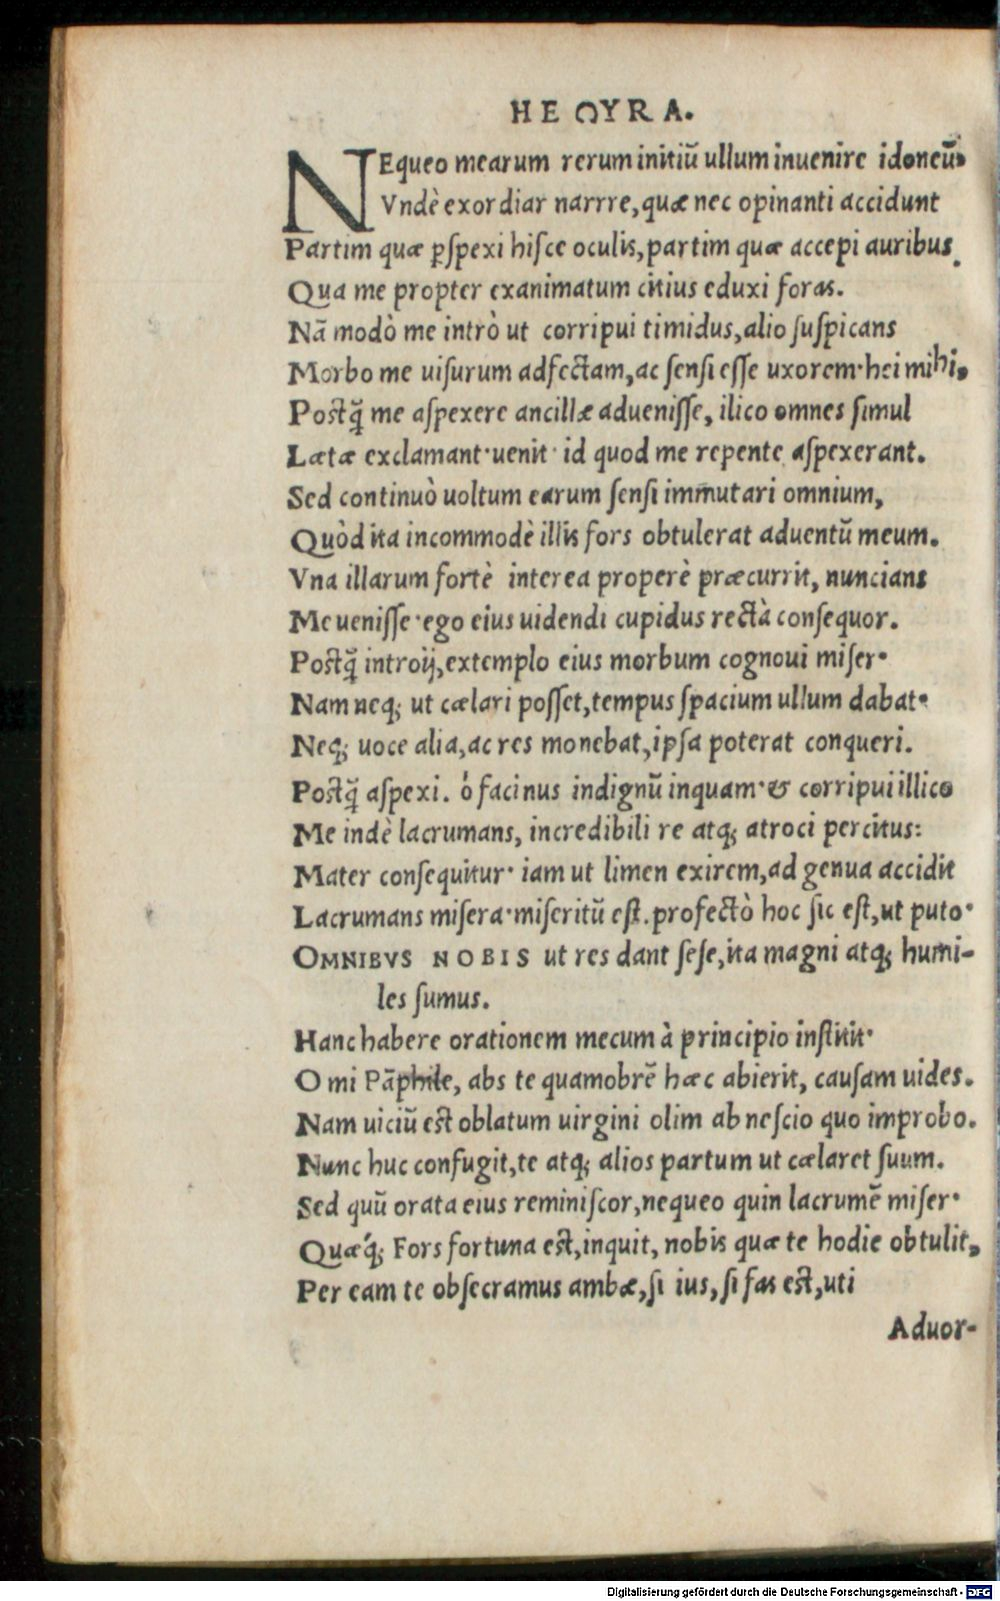 HECYRA.
NEqueo mearum rerum initiū ullum inuenire idoneū.
Vndè exordiar narrre, quæ nec opinanti accidunt
Partim quæ ꝑspexi hisce oculis, partim quæ accepi auribus.
Qua me propter exanimatum citius eduxi foras.
Nā modò me intrò ut corripui timidus, alio suspicans
Morbo me uisurum adfectam, ac sensi esse uxorem·hei mihi.
Postq̃ me aspexere ancillæ aduenisse, ilico omnes simul
Lætæ exclamant·uenit· id quod me repente aspexerant.
Sed continuò uoltum earum sensi immutari omnium,
Quòd ita incommodè illis fors obtulerat aduentū meum.
Vna illarum fortè interea properè præcurrit, nuncians
Me uenisse·ego eius uidendi cupidus rectà consequor.
Postq̃ introij, extemplo eius morbum cognoui miser·
Nam neq; ut cælari posset, tempus spacium ullum dabat·
Neq; uoce alia, ac res monebat, ipsa poterat conqueri.
Postq̃ aspexi. ó facinus indignū inquam·& corripui illico
Me indè lacrumans, incredibili re atq; atroci percitus:
Mater consequitur· iam ut limen exirem, ad genua accidit
Lacrumans misera·miseritū est. profectò hoc sic est, ut puto·
OMNIBVS NOBIS ut res dant sese, ita magni atq; humi-
les sumus.
Hanc habere orationem mecum à principio institit·
O mi Pāphile, abs te quamobrē hæc abierit, causam uides.
Nam uiciū est oblatum uirgini olim ab nescio quo improbo.
Nunc huc confugit, te atq; alios partum ut cælaret suum.
Sed quū orata eius reminiscor, nequeo quin lacrumē miser·
Quæq́; Fors fortuna est, inquit, nobis quæ te hodie obtulit,
Per eam te obsecramus ambæ, si ius, si fas est, uti
Aduor-
Digitalisierung gefördert durch die Deutsche Forschungsgemeinschaft - DFG